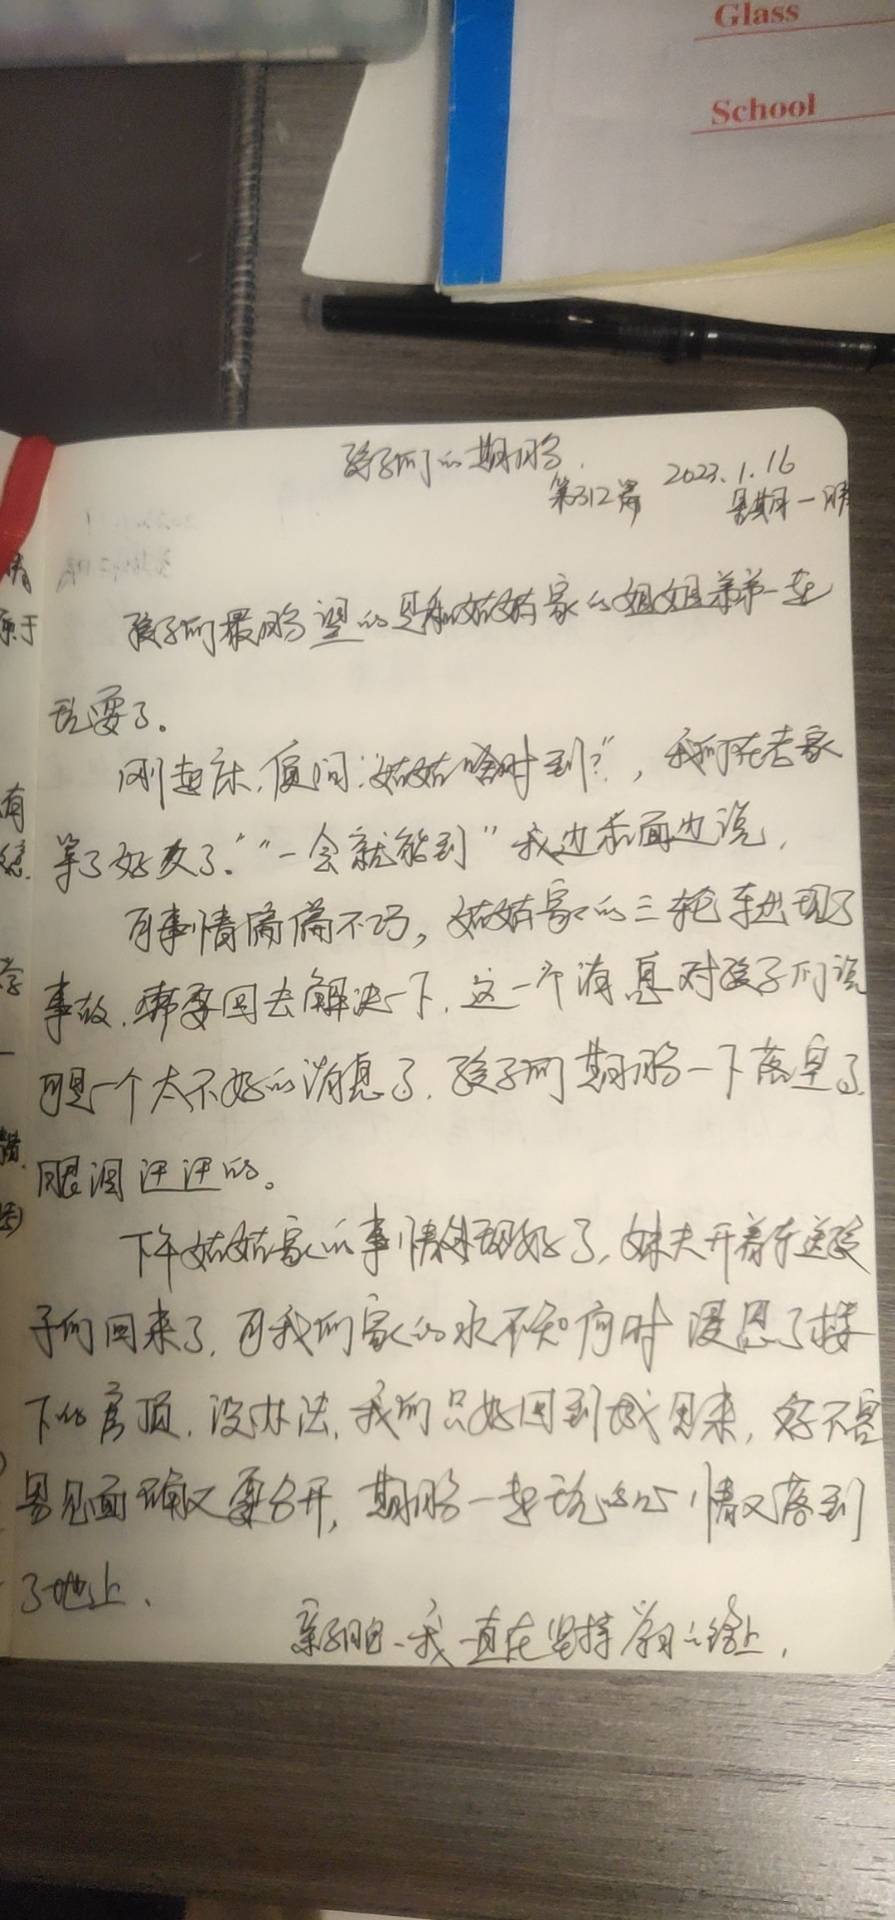 Glass
School
孩子们的期盼
第312篇 2023.1.16
星期一 晴
孩子们最盼望的是和姑姑家的姐姐弟弟一起
玩耍了。
刚起床,便问:"姑姑啥时到?",我们在老家
等了好久了."“一会就能到”我边和面边说,
可事情偏偏不巧,姑姑家的三轮车出现了
事故,需要回去解决一下,这一个消息对孩子们说
可是一个太不好的消息了.孩子们期盼一下落空了.
眼泪汪汪的。
下午姑姑家的事情处理好了,妹夫开着车送孩
子们回来了,可我们家的水不知何时漫湿了楼
下的房顶,没办法,我们只好回到城里来,好不容
易见面确又要分开,期盼一起玩的心情又落到
了地上、
亲子日、我一直在坚持学习的路上,
有